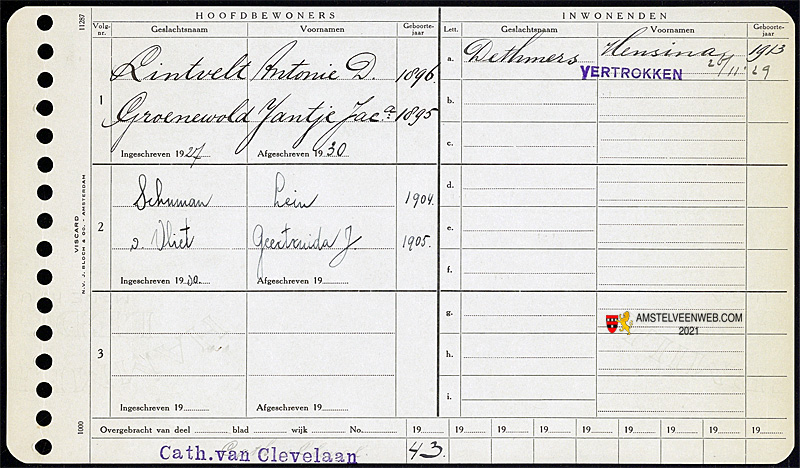 HOOFDBEWONERS
INWONENDEN
Volg-nr. Geslachtsnaam Voornamen Geboorte-jaar
Lett. Geslachtsnaam Voornamen Geboorte-jaar
1 Lintvelt Antonie D. 1896.
Groenewold Jantje Jac.a 1895
Ingeschreven 1927 Afgeschreven 1930
2 Schuman Lein 1904.
v. Vliet Geertruida J. 1905.
Ingeschreven 1930. Afgeschreven 19
3
Ingeschreven 19 Afgeschreven 19
a. Dethmers Hensina 1913
VERTROKKEN 29
b.
c.
d.
e.
f.
g.
h.
i.
AMSTELVEENWEB.COM
2021
Overgebracht van deel blad wijk No. 19 19 19 19 19 19 19 19 19
Cath. van Clevelaan 43.
11287
VISCARD
N.V. J. BLOCH & CO. - AMSTERDAM
1000